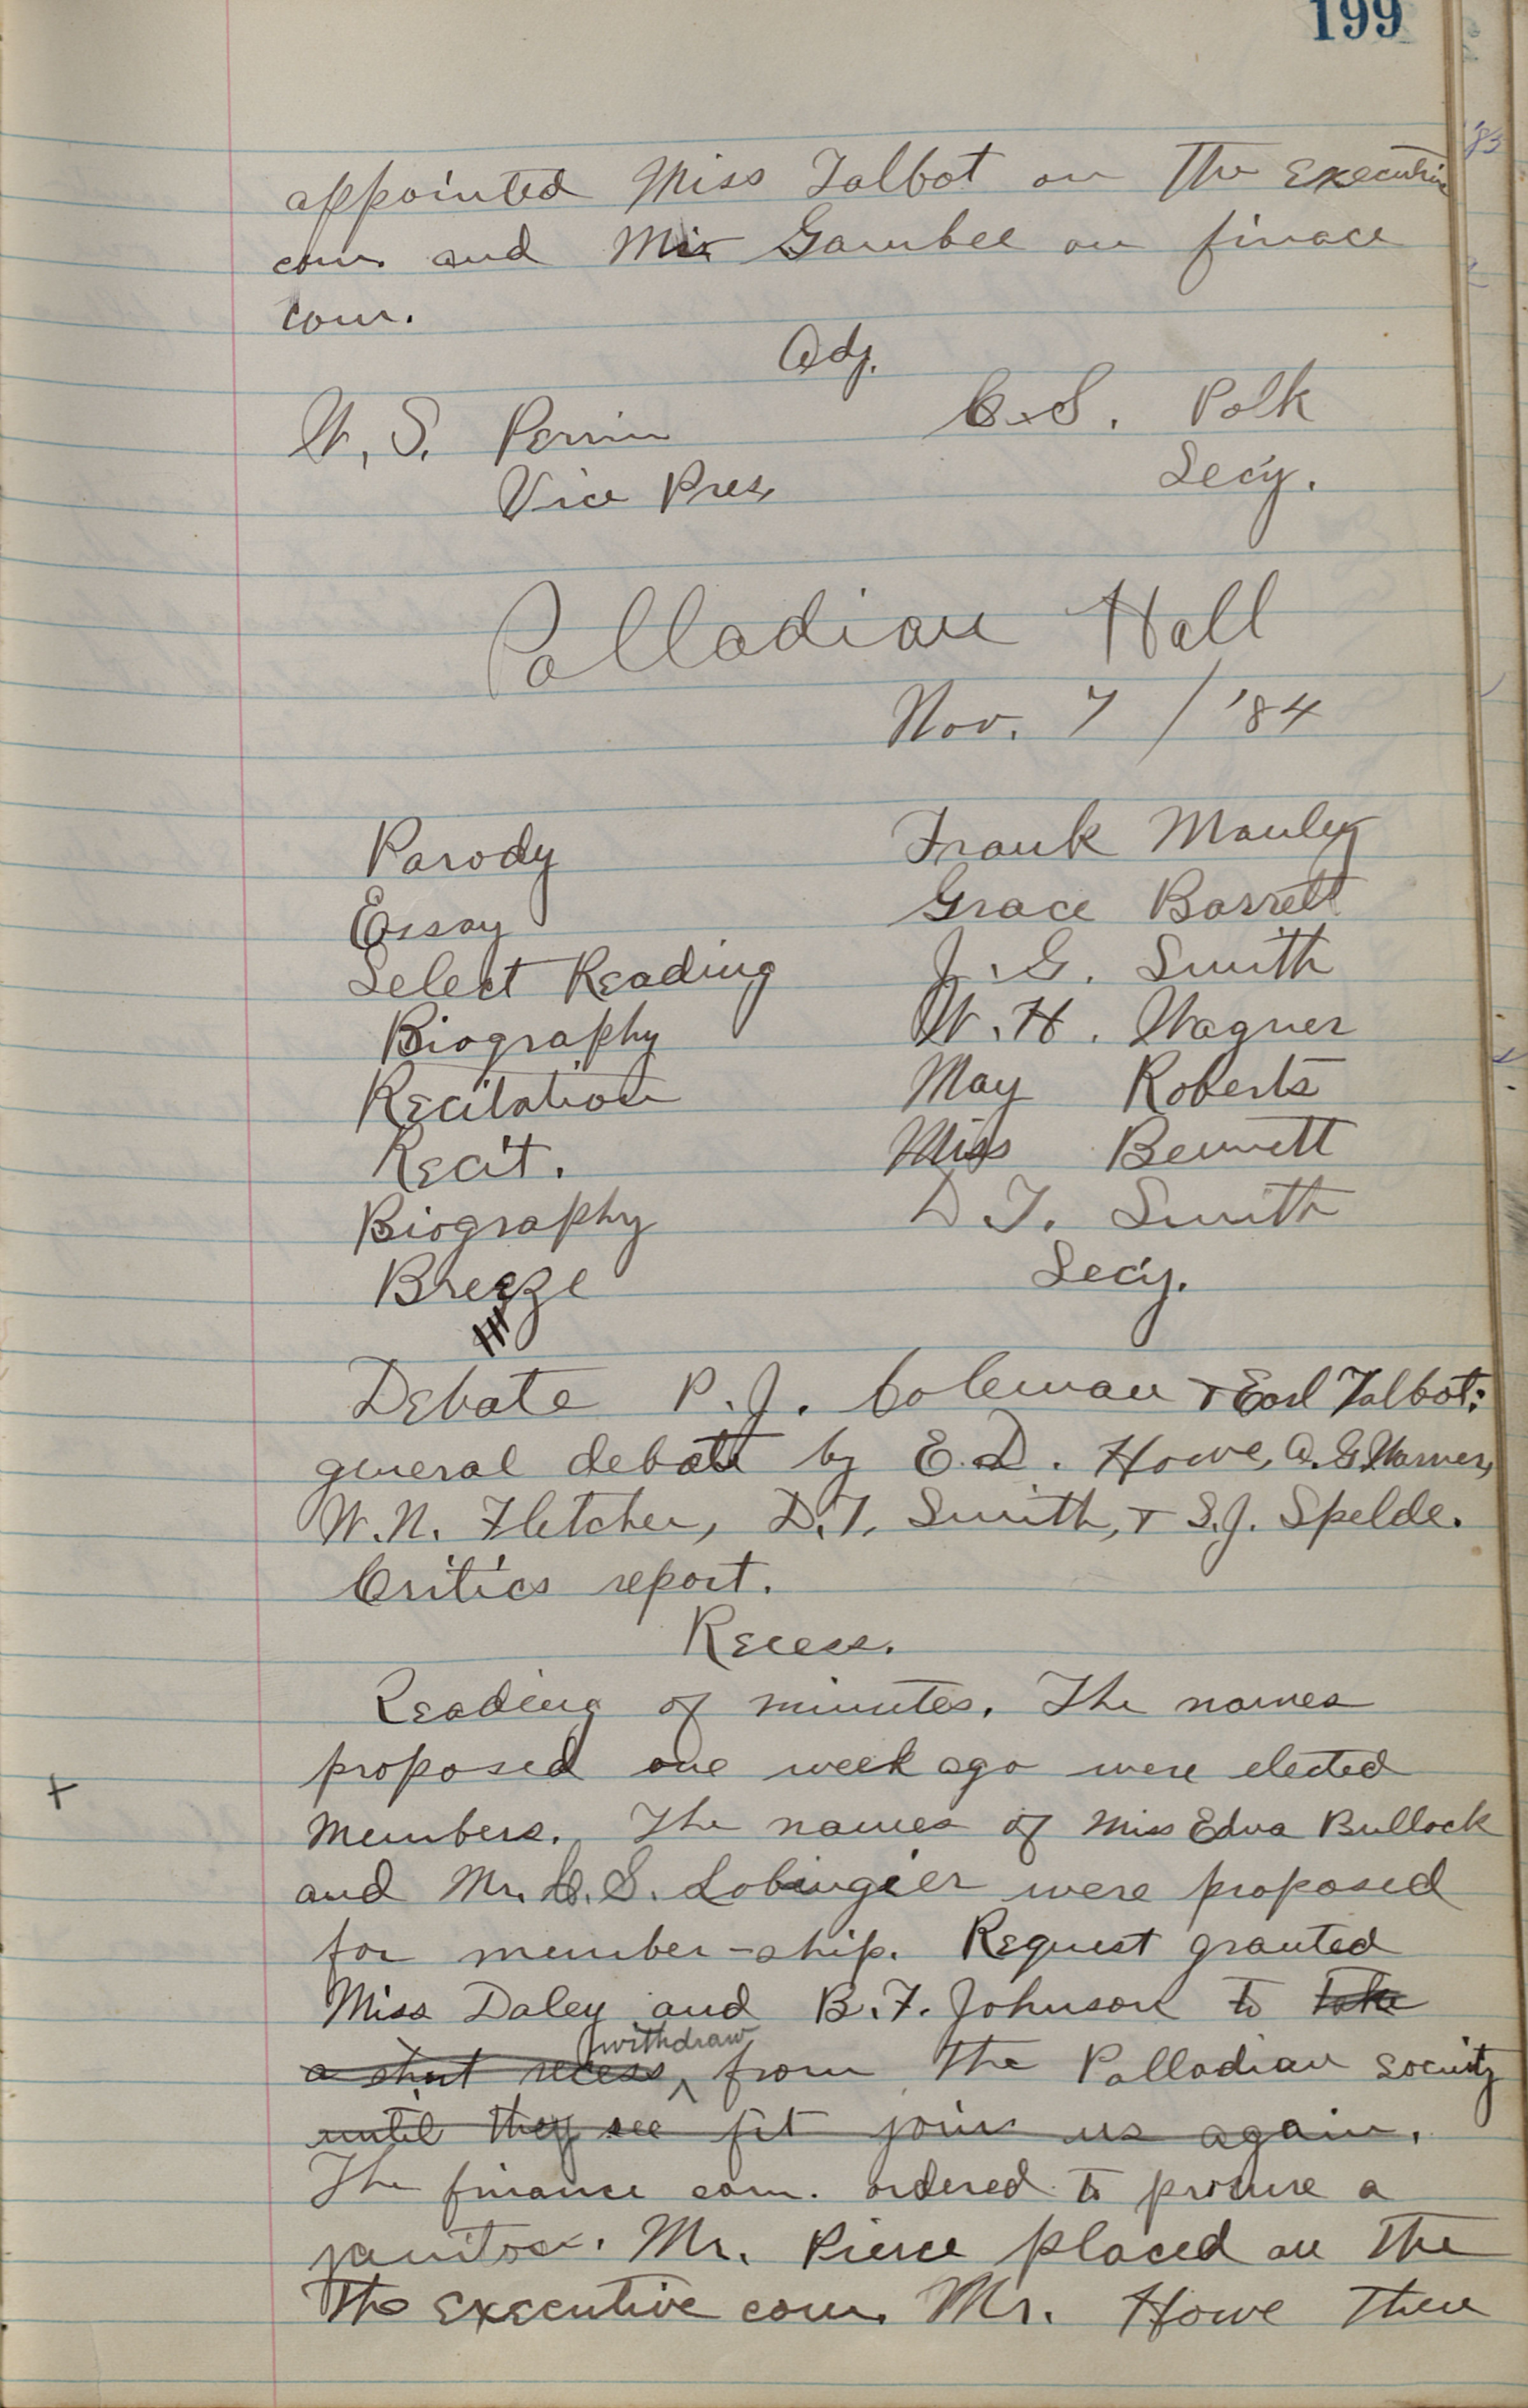 199
appointed Miss Talbot on the executive
com. and Mr Gambee on finace
com.
Adj.
W. S. Perrin C. S. Polk
Vice Pres. Secy.
Palladian Hall
Nov. 7 / '84
Parody Frank Manley
Essay Grace Barrett
Select Reading J. G. Smith
Biography W. H. Wagner
Recitation May Roberts
Recit. Miss Bennett
Biography D. T. Smith
Breeze Secy.
Debate P. J. Coleman + Earl Talbot:
general debate by E. D. Howe, A. G. Warner,
W. N. Fletcher, D. T. Smith, + S. J. Spelde.
Critics report.
Recess.
Reading of minutes. The names
proposed one week ago were elected
+
members. The names of Miss Edna Bullock
and Mr. C. S. Lobingier were proposed
for member-ship. Request granted
Miss Daley and B. F. Johnson to take
withdraw
a short recess ^ from the Palladian society
until they see fit join us again.
The finance com. ordered to procure a
janitor. Mr. Pierce placed on the
the executive com. Mr. Howe then